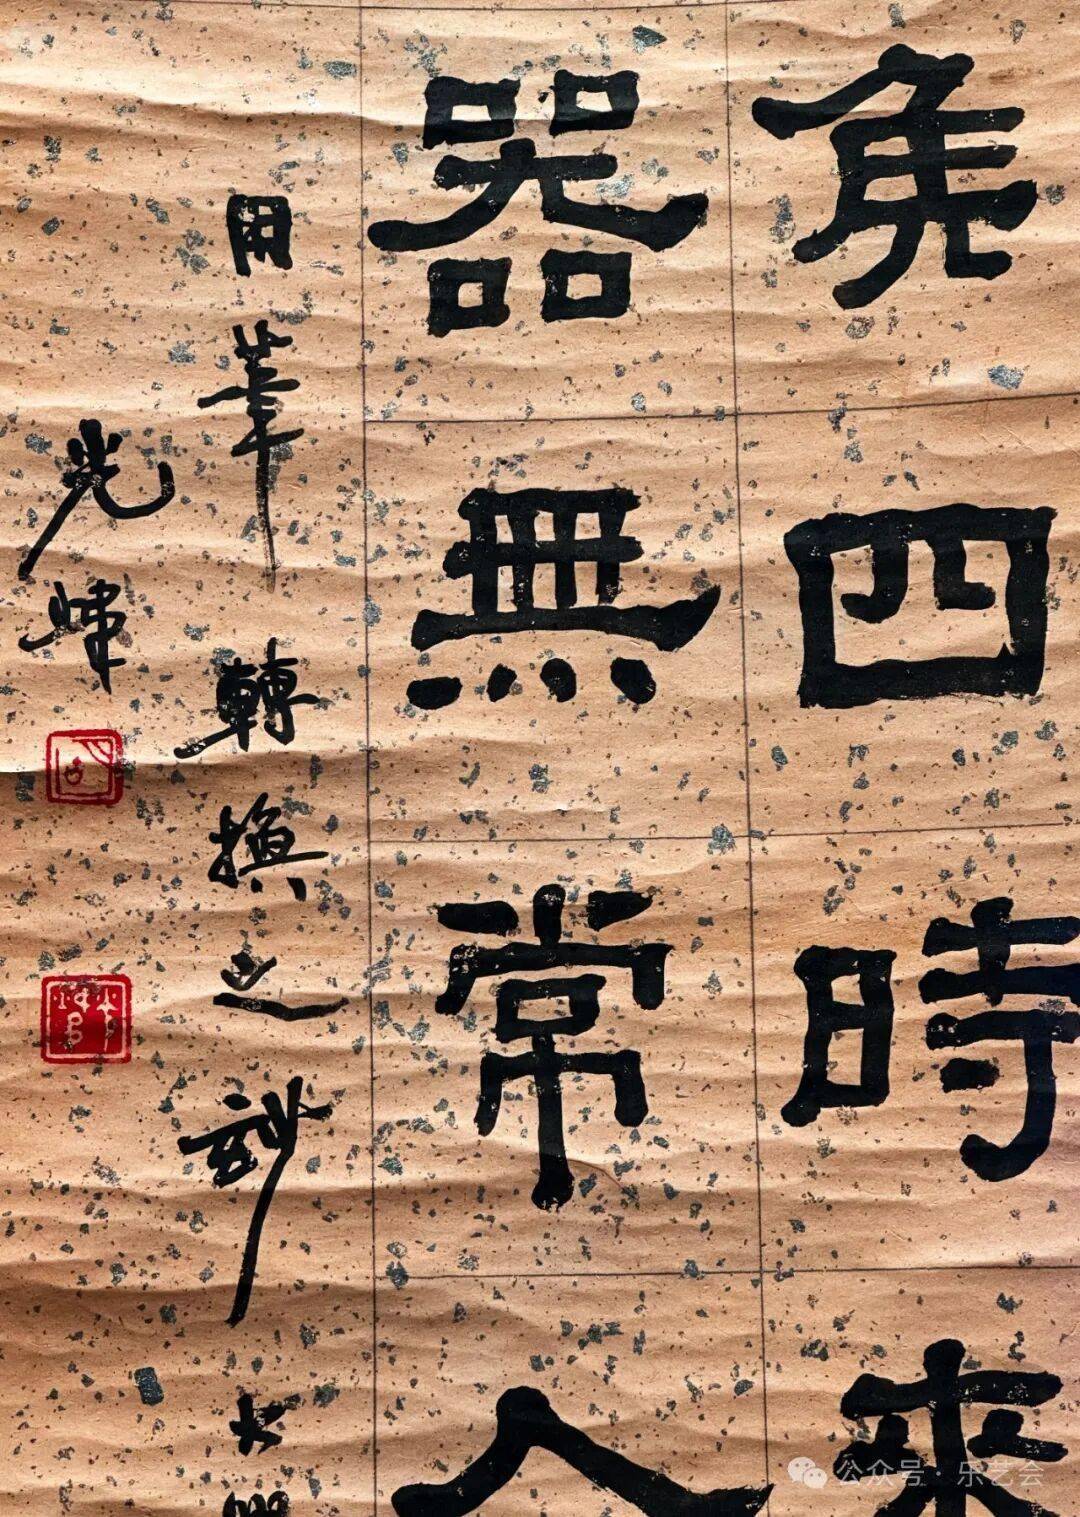 四時來
器無常
用筆轉換之妙
光暐
公众号·乐艺会